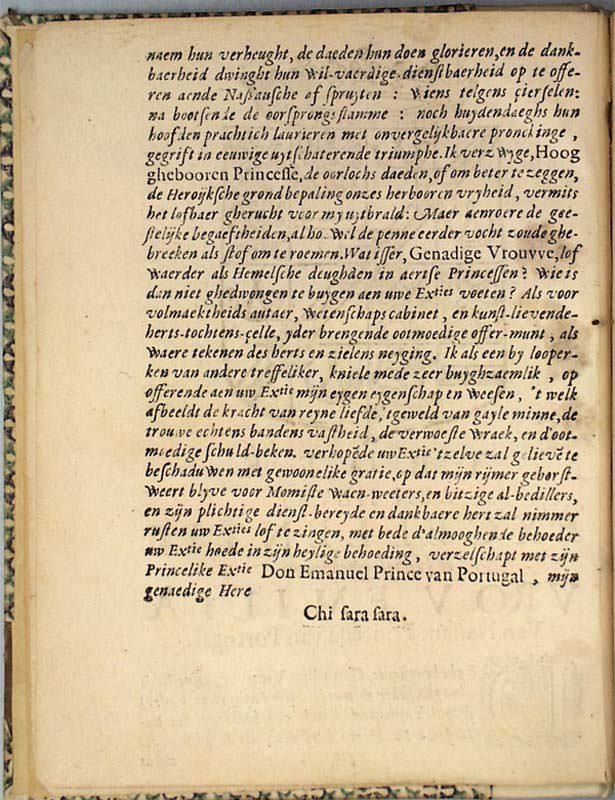 naem hun verheught, de daeden hun doen glorieren, en de dank-
baerheid dwinght hun wil-vaerdige dienstbaerheid op te offe-
ren aende Naßausche of spruyten : wiens telgens çierselen:
na bootsende de oorsprongs stamme : noch huydendaeghs hun
hoofden prachtich laurieren met onvergelijkbaere pronckinge ,
gegrift in eeuwige uytschaterende triumphe. Ik verzwyge, Hoog
ghebooren Princesse, de oorlochs daeden, of om beter te zeggen,
de Heroijksche grond bepaling onzes herbooren vryheid, vermits
het lofbaer gherucht voor my uytbrald: Maer aenroere de gee-
stelijke begaeftheiden, al ho. wel de penne eerder vocht zoude ghe-
breeken als stof om te roemen. Wat isser, Genadige Vrouvve, lof
waerder als Hemelsche deughden in aertse Princessen ? Wie is
dan niet ghedwongen te buygen aen uwe Exties voeten ? Als voor
volmaektheids autaer, wetenschaps cabinet , en kunst-lievende-
herts-tochtens-çelle, yder brengende ootmoedige offer-munt , als
waere tekenen des herts en zielens neyging. Ik als een by looper-
ken van andere treffeliker, kniele mede zeer buyghzaemlik , op
offerende aen uw Extie mijn eygen eygenschap en weesen, 't welk
afbeeldt de kracht van reyne liefde, tgeweld van gayle minne, de
trouwe echtens bandens vastheid , de verwoeste wraek, en d'oot-
moedige schuld-beken. verhopēde uw Extie 'tzelve zal gelievē te
beschaduwen met gewoonelike gratie, op dat mijn rijmer geborst-
weert blyve voor Momiste waen-weeters, en bitzige al-bedillers,
en zijn plichtige dienst-bereyde en dankbaere hert zal nimmer
rusten uw Exties lof te zingen, met bede d'almooghende behoeder
uw Extie hoede in zijn heylige behoeding , verzelschapt met zijn
Princelike Extie Don Emanuel Prince van Portugal , mijn
genaedige Here
Chi sara sara.